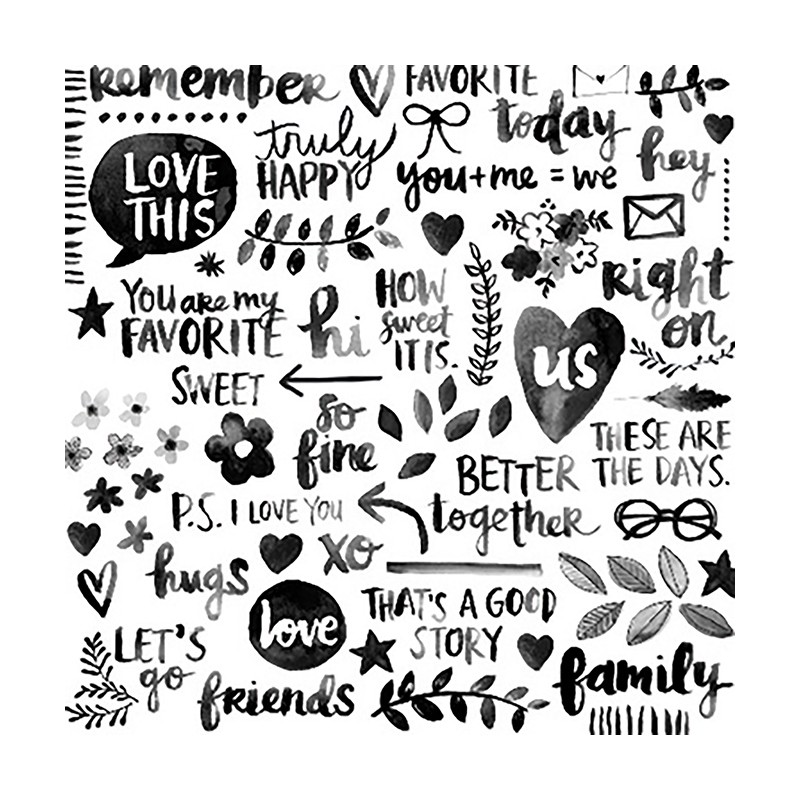 remember
FAVORITE
today
truly
HAPPY
hey
LOVE
THIS
you+me=we
Right
on
YOU are my
FAVORITE
hi
HOW
sweet
IT IS.
us
SWEET
so
fine
THESE ARE
THE DAYS.
BETTER
together
P.S. I LOVE YOU
xo
hugs
love
THAT'S A GOOD
STORY
LET'S
go
friends
family